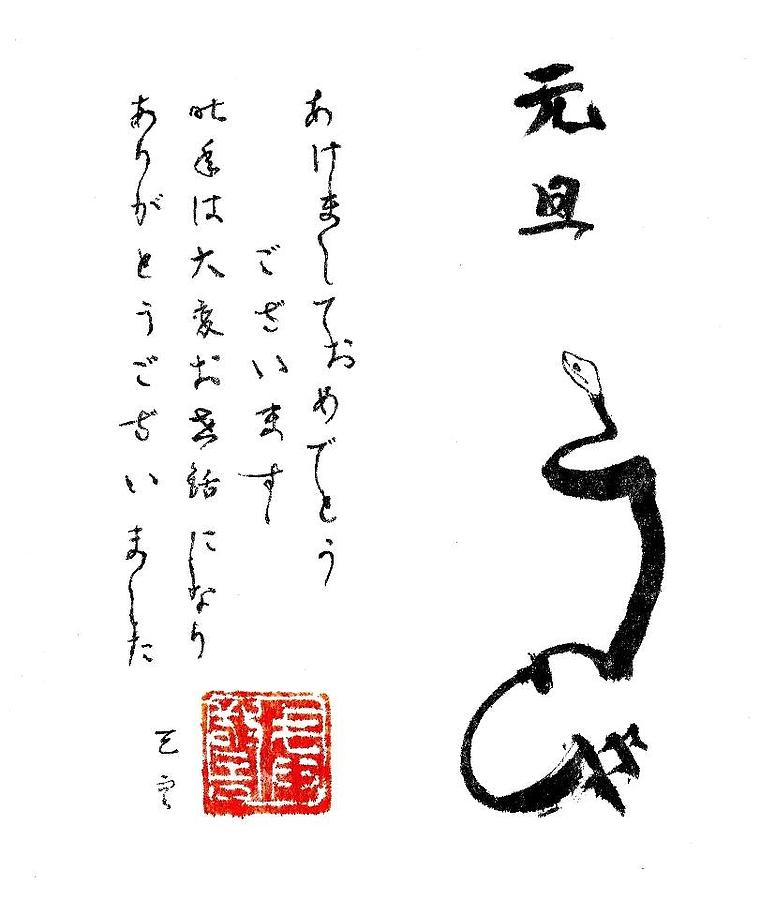 元旦
あけましておめでとう
ございます
昨年は大変お世話になり
ありがとうございました